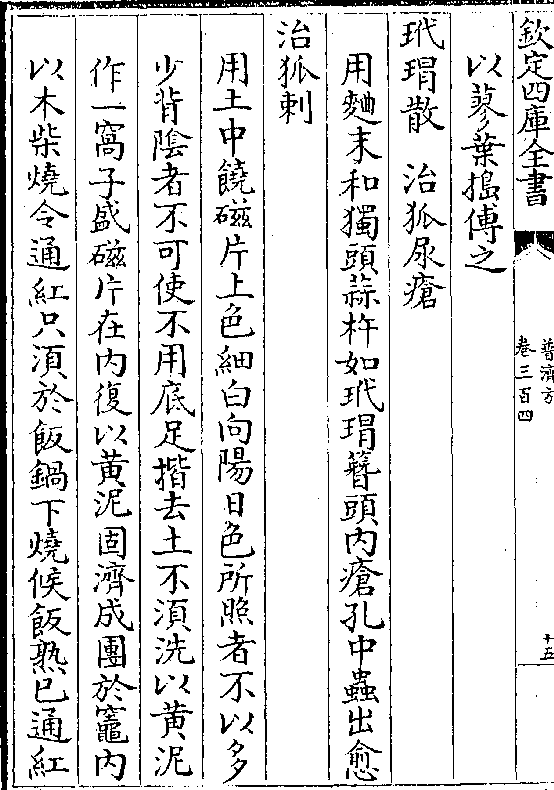 欽定四庫全書
普濟方
卷三百四
十五
以蓼葉搗傅之
玳瑁散　治狐尿瘡
用麯末和獨頭蒜杵如玳瑁簪頭內瘡孔中蟲出愈
治狐刺
用土中饒磁片上色細白向陽日色所照者不以多
少背陰者不可使不用底足揩去土不須洗以黄泥
作一窩子盛磁片在內復以黄泥固濟成團於竈內
以木柴燒令通紅只湏於飯鍋下燒候飯熟已通紅